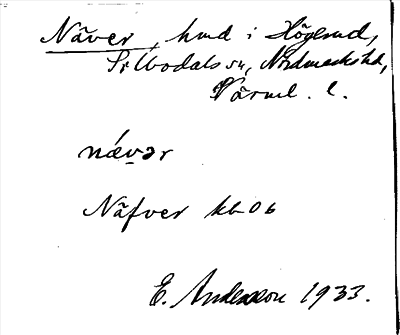 Näver, hmd i Högerud,
Sillbodals sn, Nordmarks hd,
Värml. l.
nǽvər
Näfver kb 06
E. Andersson 1933.